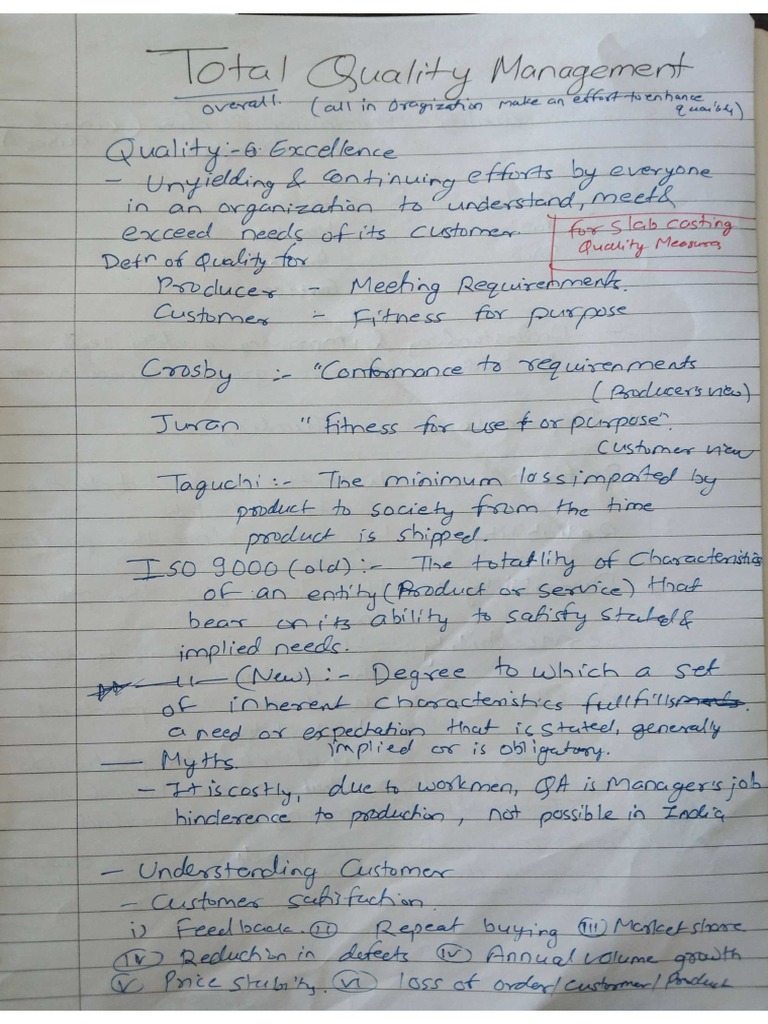 Total Quality Management
overall. (all in Oragization make an effort to enhance
quality)
Quality:- Excellence
- Unyielding & Continuing efforts by everyone
in an organization to understand, meet &
exceed needs of its customer.
for Slab Casting
Quality Measures
Defn of Quality for
Producer - Meeting Requirenments.
Customer :- Fitness for purpose
Crosby :- "Conformance to requirenments
(Producer's view)
Juran "Fitness for use & or purpose".
Customer view
Taguchi :- The minimum loss imparted by
product to society from the time
product is shipped.
ISO 9000 (old) :- The totatlity of Characteristics
of an entity (Product or service) that
bear on its ability to satisfy stated &
implied needs.
—11— (New) :- Degree to which a set
of inherent characteristics fullfills
a need or expectation that is stated, generally
implied or is obligatory.
— Myths.
- It is costly, due to workmen, QA is Manager's job
hinderence to production, not possible in India
- Understanding Customer
- Customer satisfaction.
i) Feedback. (ii) Repeat buying (iii) Market share
(iv) Reduction in defects (iv) Annual volume growth
(v) Price stability. (vi) loss of order/customer/Product